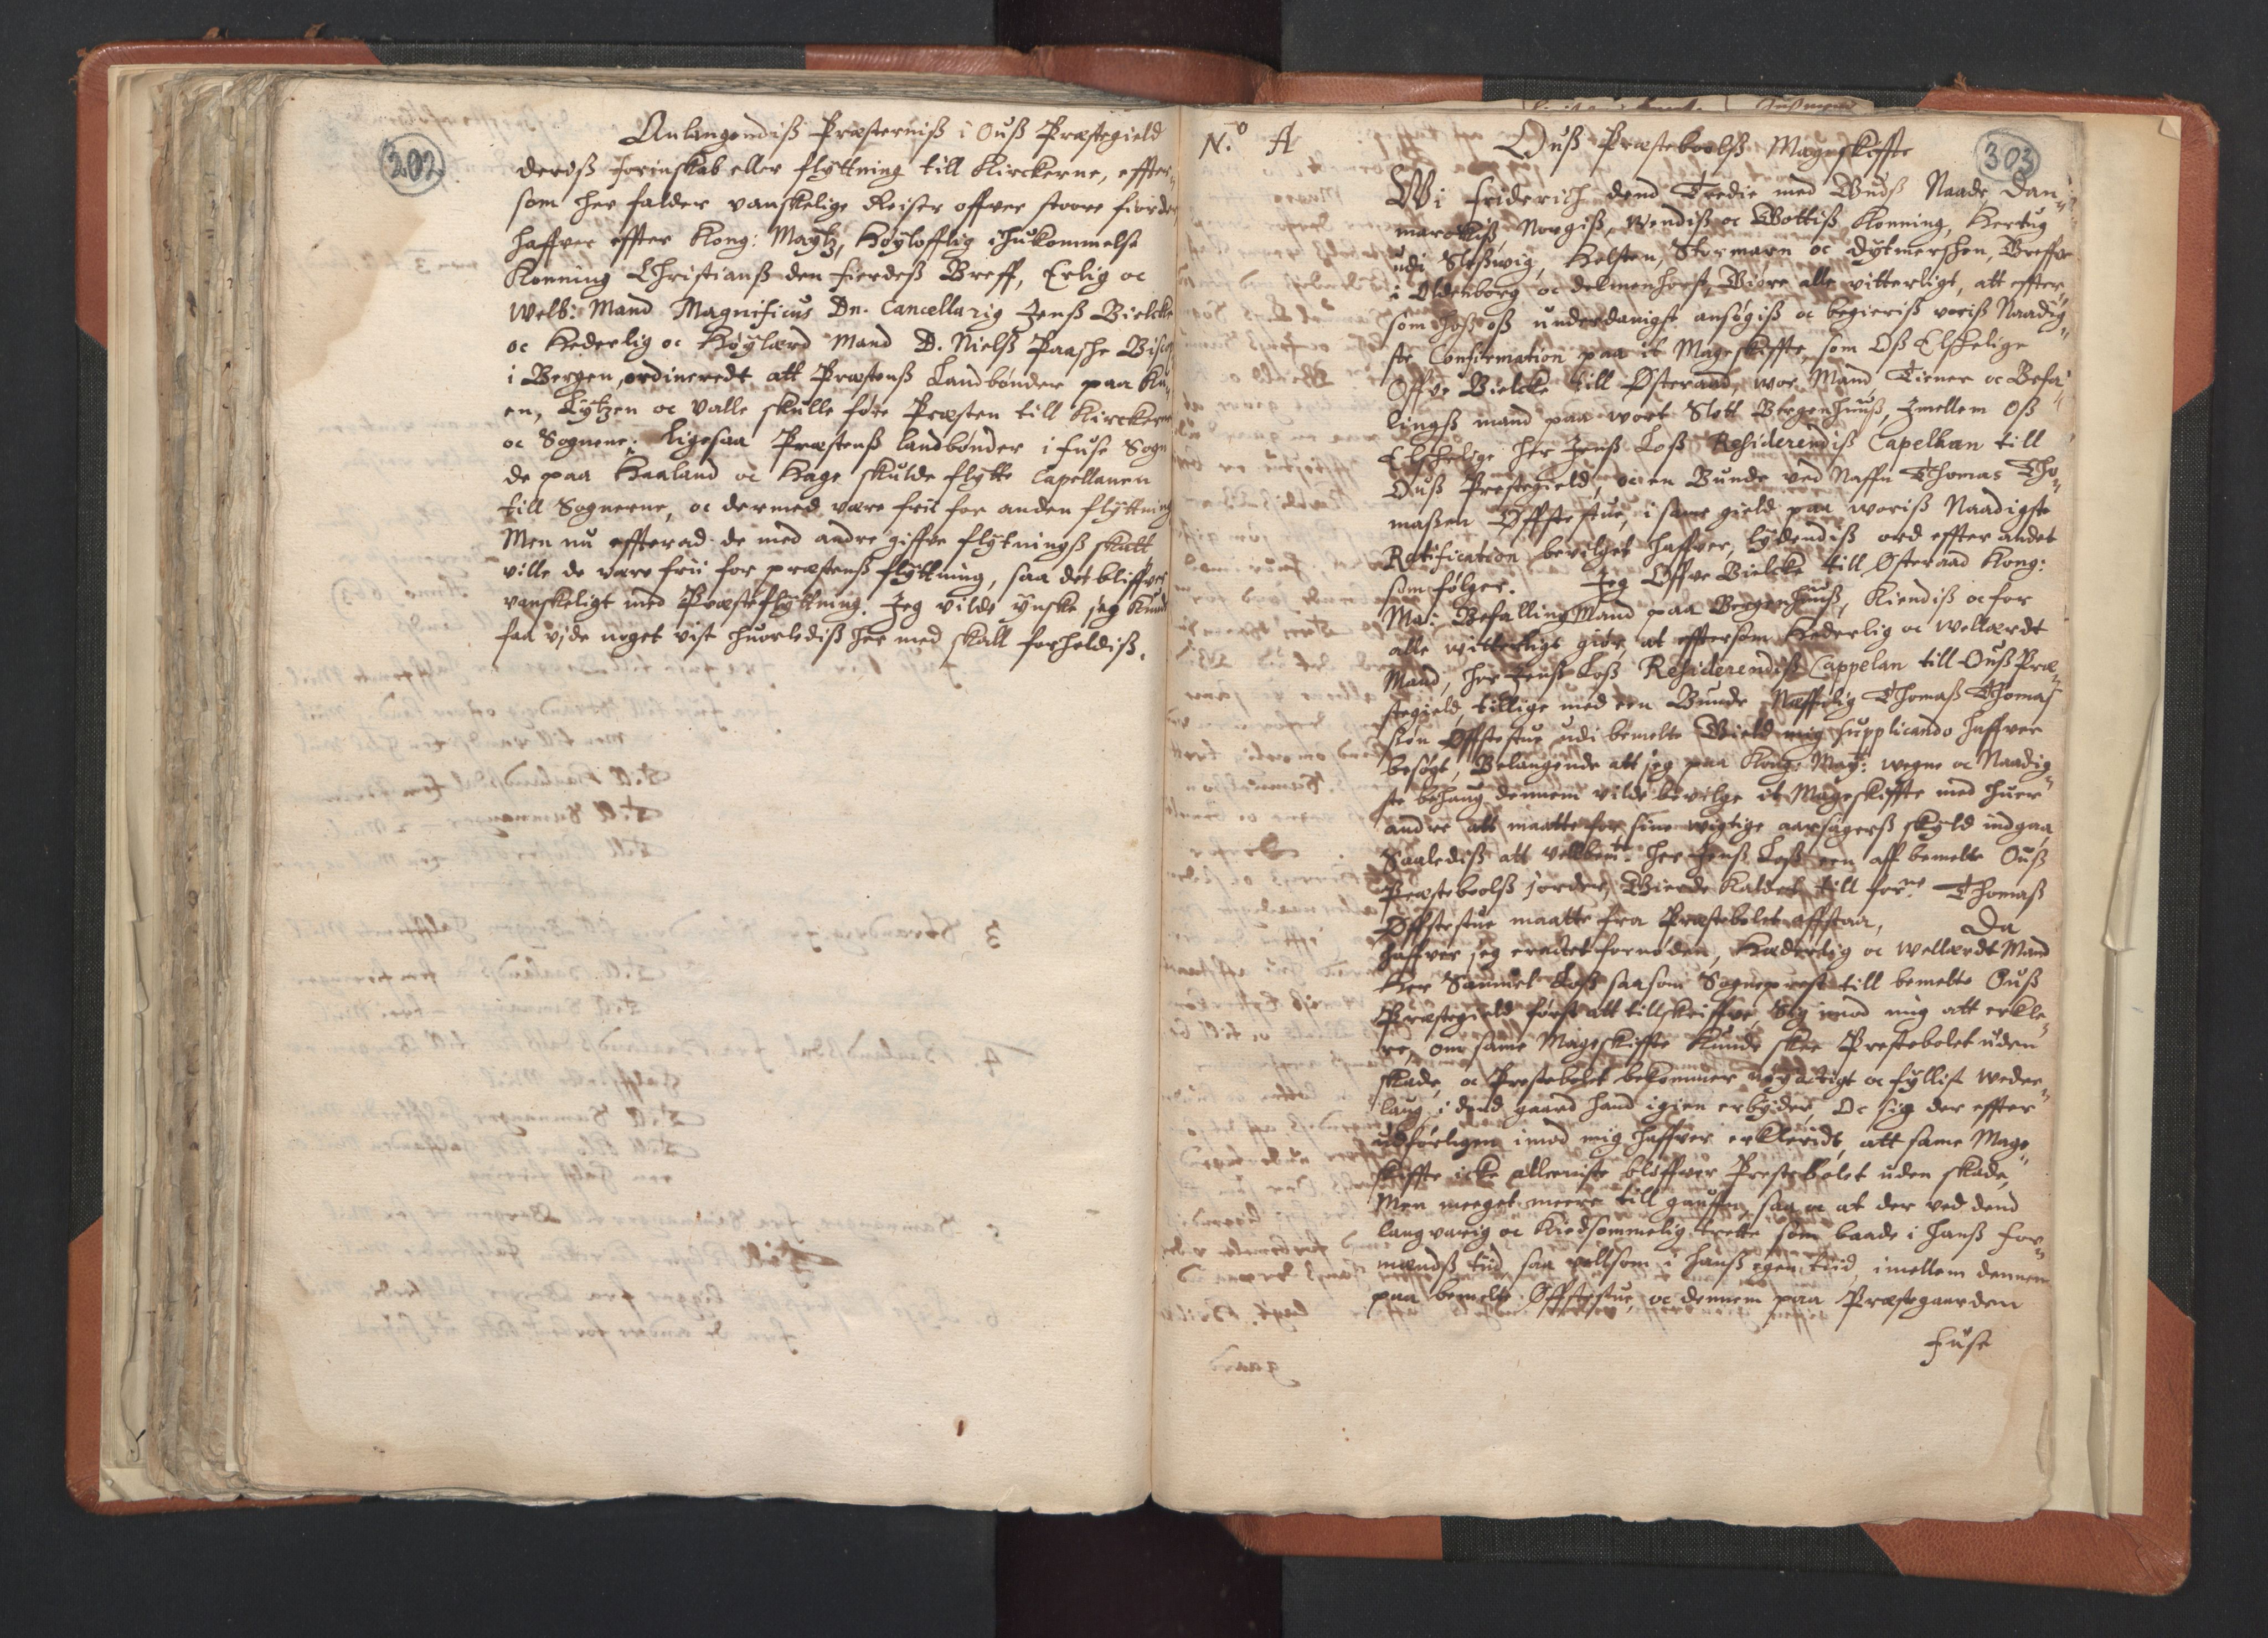 202
Anlangendiß Præsterniß i Ouß Præstegield
deriß forinskab eller flyttning till Kirckerne, effter-
som her falder vanskelige Reiser offver stoore fiorde
haffver effter Kong: Maytz, Høylofflig ihukommelse
Konning Christianß den fierdeß Breff, Erlig oc
Welb: Mand Magnificus Dn. Cancellarig Jenß Bielcke
oc Hederlig oc Høylærd Mand D. Nielß Paasche Bisco
i Bergen, ordineredt att Præstenß Landbønder paa
en, Lytzen oc Valle skulle føre Præsten till Kirckerne
oc Sognene; Ligesaa Præstenß landbønder i Fuse Sogn
de paa Haaland oc Hage skulde flytte Capellanen
till Sognerne, oc dermed være frii for anden flyttning
Men nu effterad de med andre giffve flytningß skatt
ville de være frii for præstenß flyttning, saa det bliffver
vanskeligt med Præsteflyttning. Jeg vilde ynske jeg kunde
faa vide noget vist huorlediß her med skall forholdiß.
303
N.º A
Ouß Præsteboolß Mageskiffte
Wi Friderich dend Tredie med Gudß Naade, Dan-
marckiß, Norgiß, Wendiß oc Gottiß Konning, Hertug
udi Sleßwig, Holsten, Stormarn oc Dytmerschen, Greffve
i Oldenborg oc Delmenhorst, Giøre alle vitterligt, att effter-
som hoß oß underdanigst ansøgiß oc begieriß voriß Naadig-
ste Confirmation paa it Mageskiffte som Oß Elskelige
Offve Bielcke till Østeraad, wor Mand Tiener oc Befa-
lingß mand paa wort Slott Bergenhuuß, Imellem Oß
Elskelige Her Jenß Loß Residerendiß Capellan till
Ouß Prestegield, oc en Bunde ved Naffn Thomas Tho-
maßen Øffstestue, i same gield paa woriß Naadigste
Ratification bevilget haffver, lydendiß ord effter andet
som følger. Jeg Offve Bielcke till Østeraad Kong:
May: BefallingßMand paa Bergenhuuß, Kiendiß oc for
alle witterligt giør, at efftersom Hederlig oc wellærdt
Mand, Her Jenß Loß Residerendiß Cappelan till Ouß Præ-
stegield, tillige med een Bunde Naffnlig Thomaß Thomas
søn Øffstestue udi bemelte Gield mig supplicando haffver
besøgt, Belangende att jeg paa Kong: May: wegne oc Naadig-
ste behaug dennem vilde bevilge it Mageskiffte med huer
andre att maatte for sine wigtige aarsagerß skyld indgaa,
Saalediß att velbemte Her Jenß Loß een aff bemelte Ouß
Præsteboolß jorder, Gierde kaldet till forne Thomaß
Øffstestue maatte fra Præstebolet affstaa, Da
haffver jeg eractet fornøden, Hæderlig oc wellærdt Mand
Her Samuel Loß saasom Sogneprest till bemelte Ouß
Præstegield først att tillskriffve, Sig imod mig att erkle-
re, om same Mageskiffte kunde skee Prestebolet uden
skade, oc Prestebolet bekommer nøyactigt oc fyllist weder-
laug i dend gaard hand igien erbyder, Oc sig der effter
udførligen imod mig haffver erkleridt, att same Mage-
skiffte icke alleeniste bliffver Prestebolet uden skade,
Men meeget meere till gauffn, saa oc at der ved dend
langvarig oc kiedsommelig trette som baade i hanß for-
mandß tiid saa vellsom i hanß egen tiid, imellem dennem
paa bemelte Øffstestue, oc dennem paa Præstegaarden
Fuse